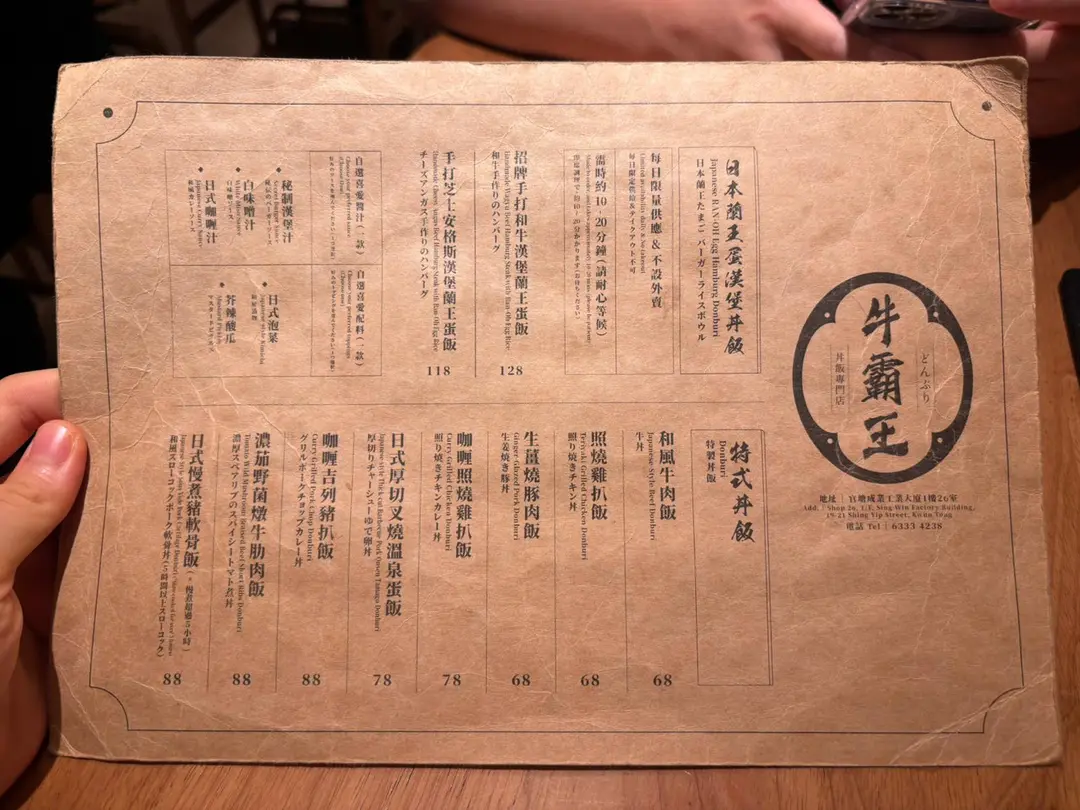 牛霸王
どんぶり
丼飯專門店
地址 | 官塘成業工業大廈1樓26室
Add. / Shop 26, 1/F, Sing Win Factory Building,
19-21 Shing Yip Street, Kwun Tong
電話 Tel | 6333 4238
日本蘭王蛋漢堡丼飯
Japanese RAN-OH Egg Hamburg Donburi
日本蘭王たまごバーガーライスボウル
每日限量供應&不設外賣
毎日限定供給&テイクアウト不可
需時約10-20分鐘(請耐心等候)
招牌手打和牛漢堡蘭王蛋飯
Handmade Wagyu Beef Hamburg Steak with Ran-Oh Egg Rice
和牛手作りのハンバーグ
128
手打芝士安格斯漢堡蘭王蛋飯
Handmade Cheese Angus Beef Hamburg Steak with Ran-Oh Egg Rice
チーズアンガス手作りのハンバーグ
118
自選喜愛醬汁(一款)
Choose your preferred sauce
(Choose One)
◆ 秘制漢堡汁
Secret Burger Sauce
秘伝のバーガーソース
◆ 白味噌汁
White Miso Sauce
白味噌ソース
◆ 日式咖喱汁
Japanese Curry Sauce
和風カレーソース
自選喜愛配料(一款)
Choose your preferred toppings
(Choose One)
◆ 日式泡菜
Japanese style Kimchi
◆ 芥辣酸瓜
Mustard Pickles
マスタードピクルス
特式丼飯
Donburi
特製丼飯
和風牛肉飯
Japanese Style Beef Donburi
牛丼
68
照燒雞扒飯
Teriyaki Grilled Chicken Donburi
照り焼きチキン丼
68
生薑燒豚肉飯
Ginger-Glazed Pork Donburi
生姜焼き豚丼
68
咖喱照燒雞扒飯
Curry Grilled Chicken Donburi
照り焼きチキンカレー丼
78
日式厚切叉燒溫泉蛋飯
Japanese style Thick-cut Barbecue Pork Onsen Tamago Donburi
厚切りチャーシューゆで卵丼
78
咖喱吉列豬扒飯
Curry Grilled Pork Chop Donburi
グリルポークチョップカレー丼
88
濃茄野菌燉牛肋肉飯
Tomato Wild Mushroom Braised Beef Short Ribs Donburi
濃厚スペアリブのスパイシートマト煮丼
88
日式慢煮豬軟骨飯(*慢煮超過5小時)
和風スローコックポーク軟骨丼(5時間以上スローコック)
88